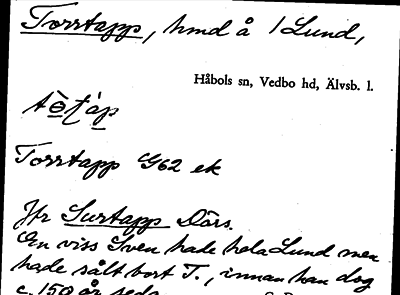 Torrtapp, hmd å 1 Lund,
Håbols sn, Vedbo hd, Älvsb. l.
Torrtapp G62 ek
Jfr Surtapp Dörs.
En viss Sven hade hela Lund men
hade sålt bort T., innan han dog
c. 150 år seda